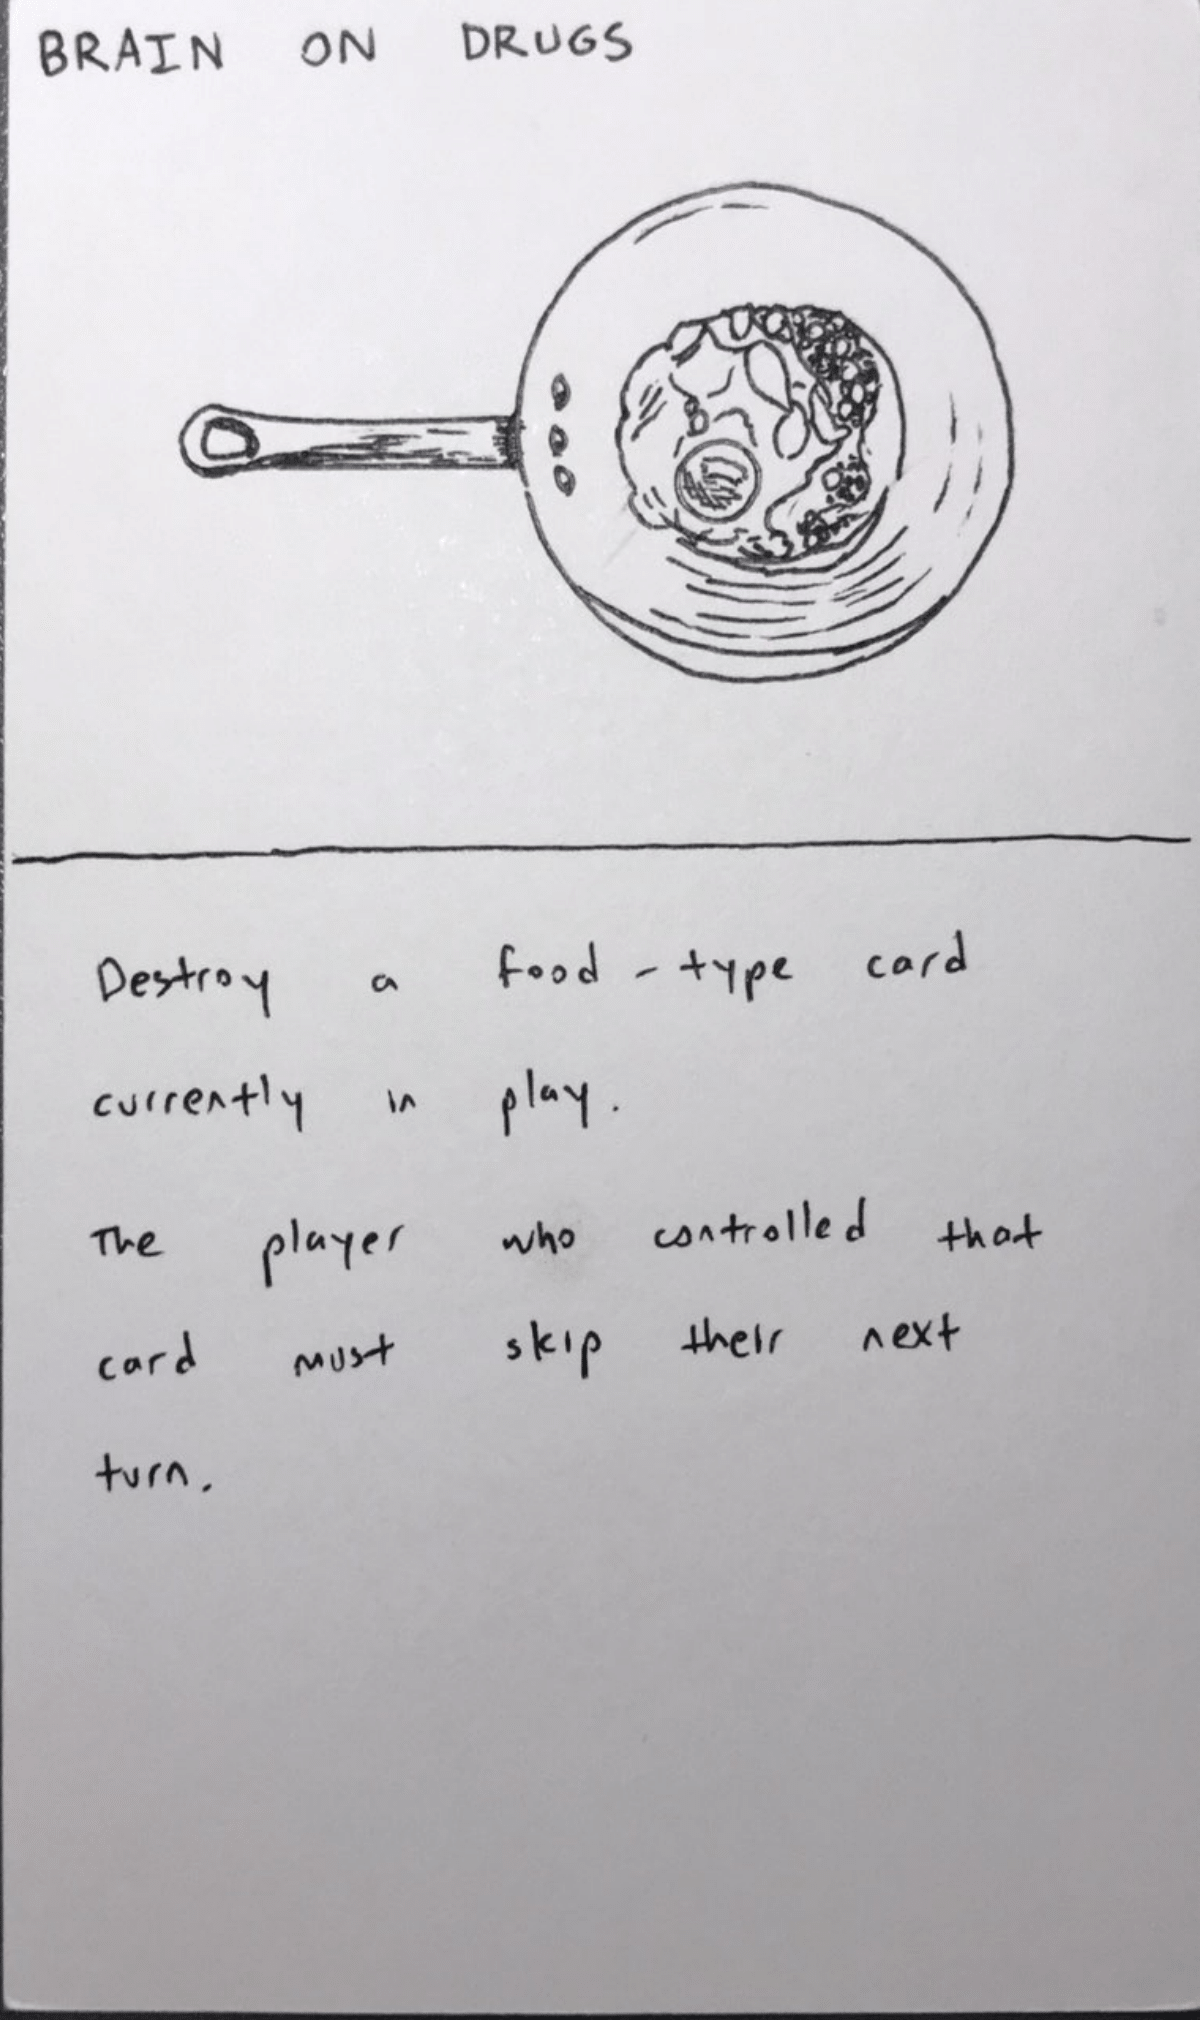 BRAIN ON DRUGS
Destroy a food-type card
currently in play.
The player who controlled that
card must skip their next
turn.